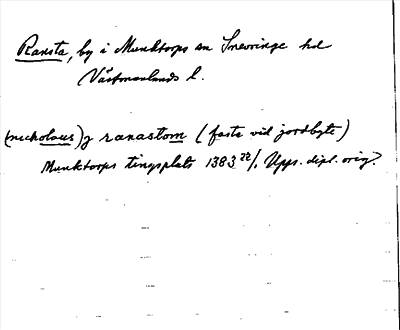 Ransta, by i Munktorps sn Snevringe hd
Västmanlands l.
(nicholaus) j ranastom (faste vid jordbyte)
Munktorps tingsplats 1383 22/1 Upps. dipl. orig.